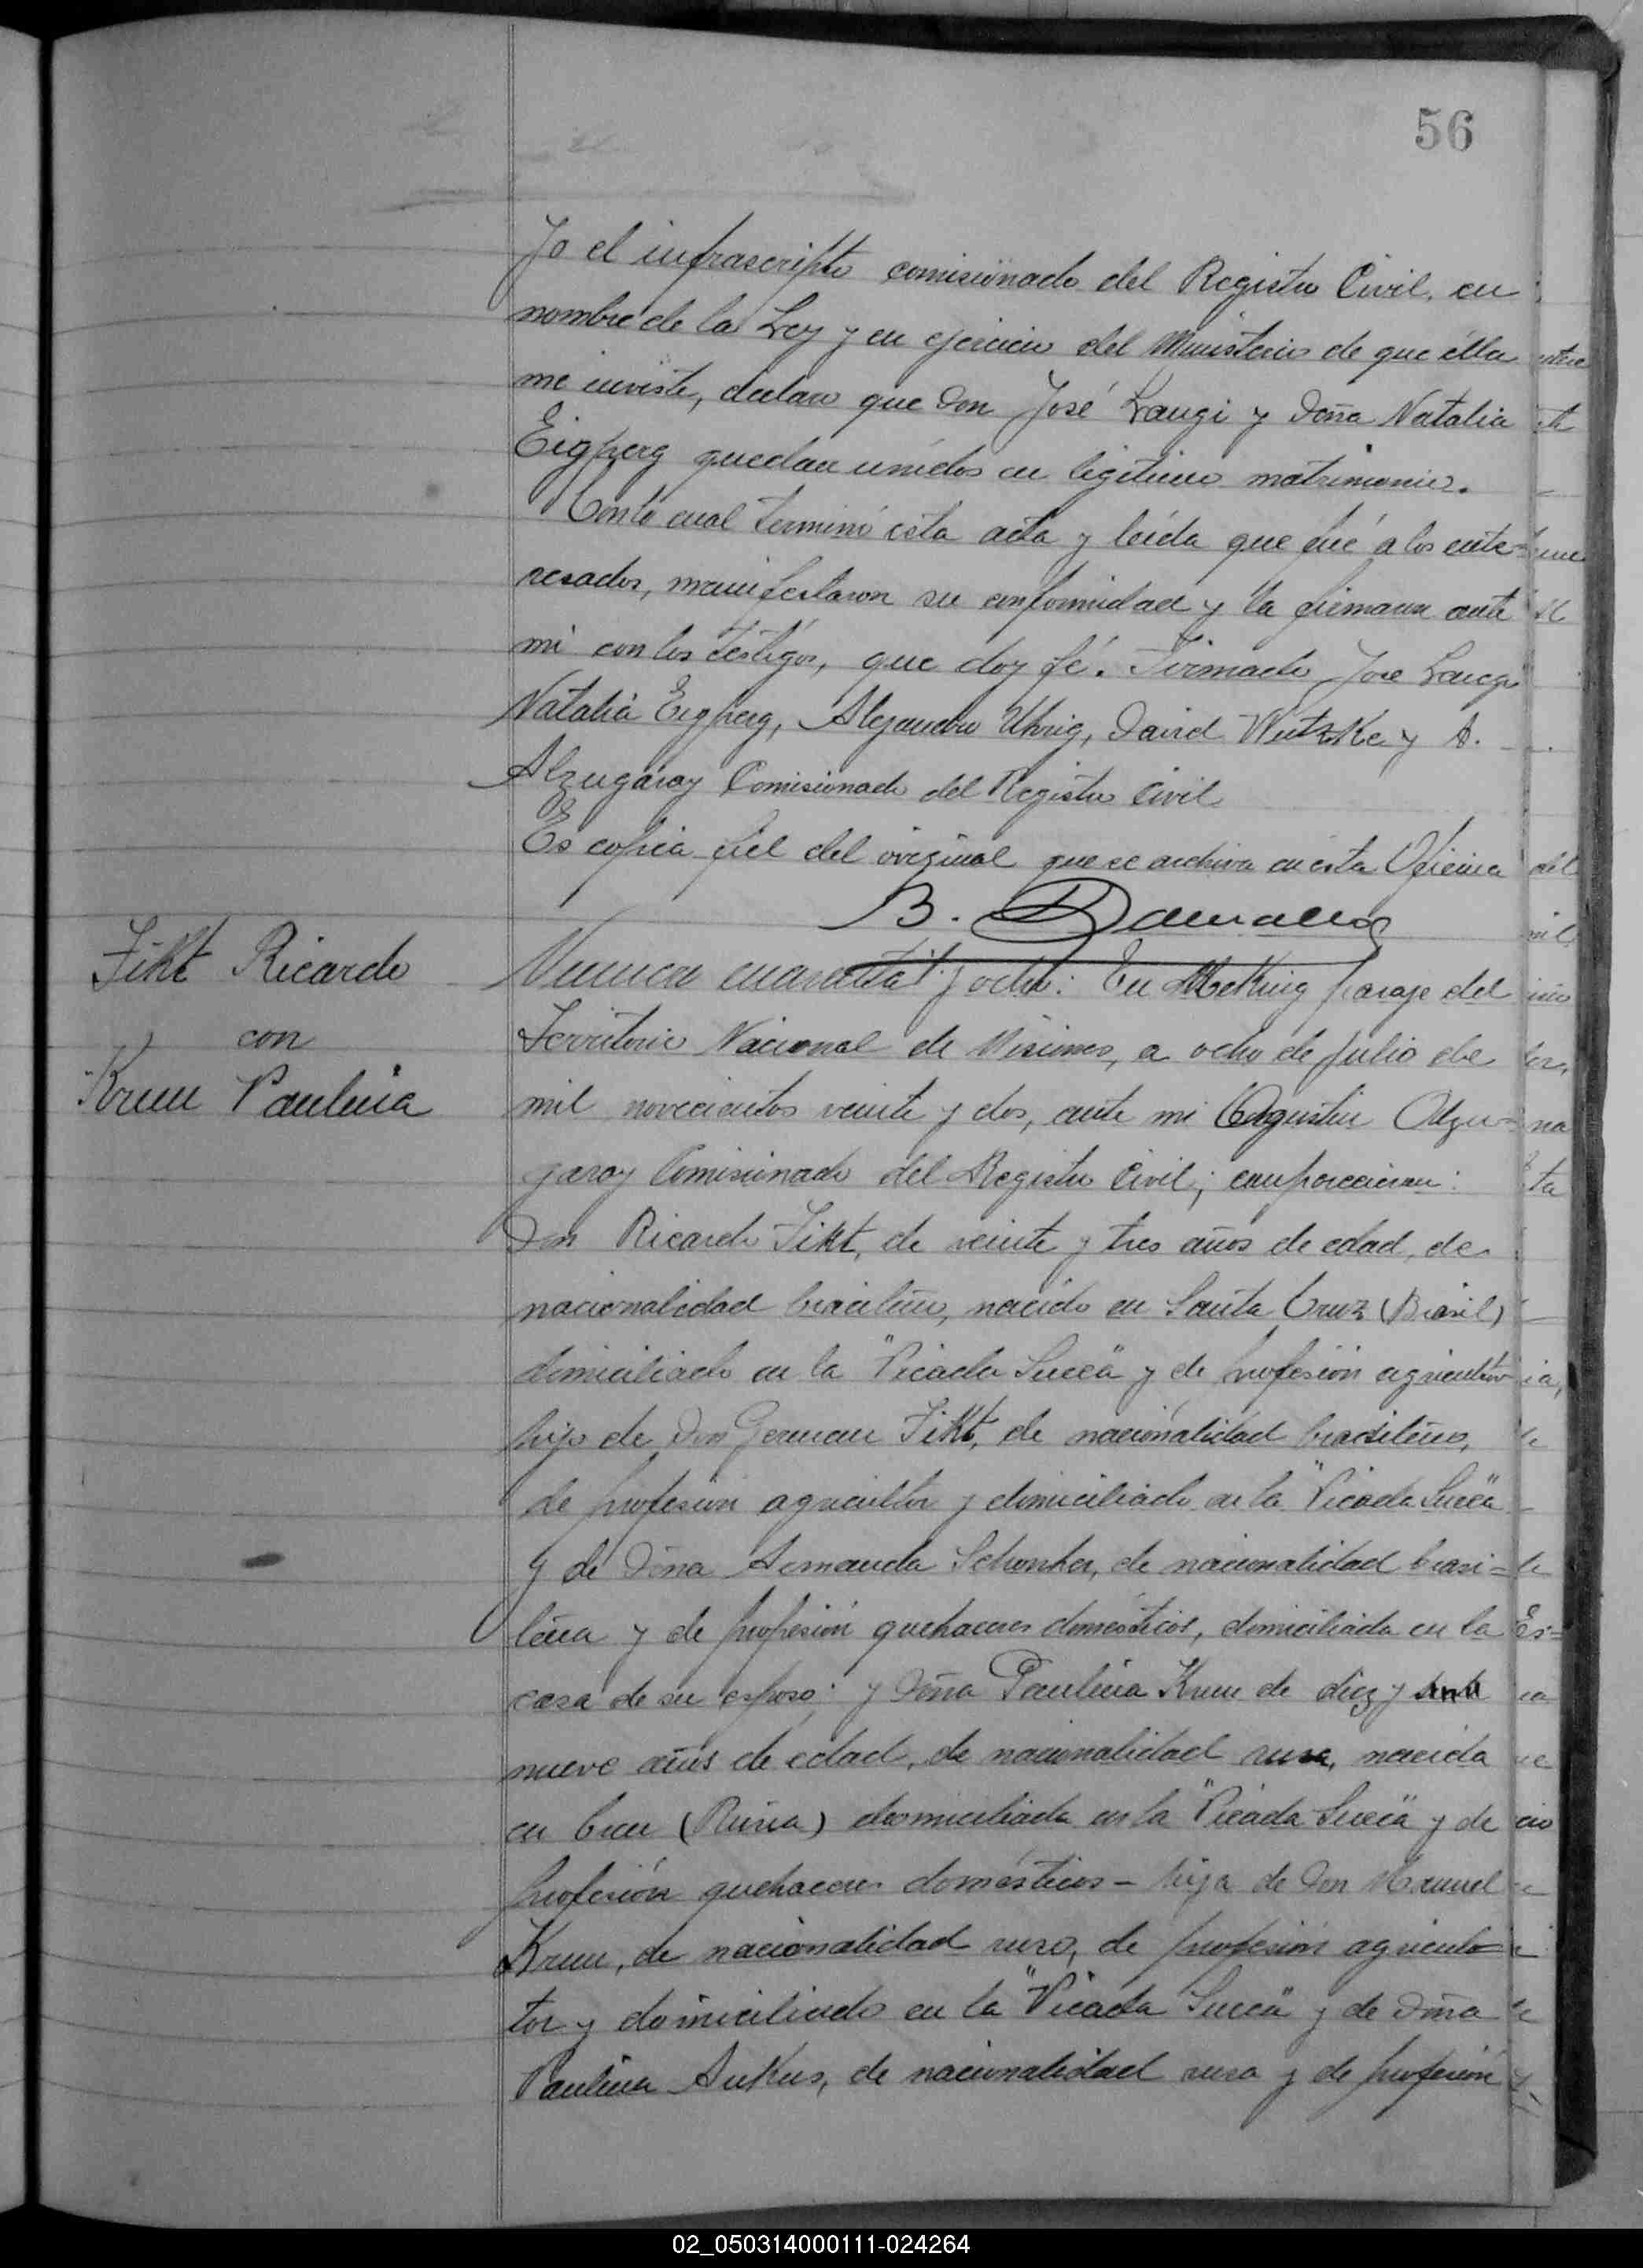 56
Yo el infrascripto comisionado del Registro Civil, en
nombre de la Ley y en ejercicio del Ministerio de que élla
me inviste, declaro que Don José Langi y Doña Natalia
Eigperg quedan unidos en legítimo matrimonio.
Con lo cual terminó ésta acta y leída que fué a los inte-
resados, manifestaron su conformidad y la firmaron ante
mi con los testigos, que doy fé. Firmado José Langi
Natalia Eigperg, Alejandro Uhrig, David Wutzke y A.
Alzugaray Comisionado del Registro Civil
Es copia fiel del original que se archiva en ésta Oficina
B.
Fikt Ricardo
con
Krun Paulina
Numero cuarenta y ocho: En Mecking paraje del
Territorio Nacional de Misiones, a ocho de Julio de
mil novecientos veinte y dos, ante mi Agustin Alzu-
garay Comisionado del Registro Civil; comparecieron:
Don Ricardo Fikt, de veinte y tres años de edad, de
nacionalidad brasileño, nacido en Santa Cruz (Brasil)
domiciliado en la "Picada Sueca" y de profesión agricultor
hijo de Don German Fikt, de nacionalidad brasileño,
de profesion agricultor y domiciliado en la "Picada Sueca"
y de Doña Armanda Schonker, de nacionalidad brasi-
leña y de profesión quehaceres domésticos, domiciliada en la
casa de su esposo; y Doña Paulina Krun de diez y
nueve años de edad, de nacionalidad rusa, nacida
en (Rusia) domiciliada en la "Picada Sueca" y de
profesión quehaceres domésticos - hija de Don Manuel
Krun, de nacionalidad ruso, de profesión agricul-
tor y domiciliado en la "Picada Sueca" y de Doña
Paulina Aukus, de nacionalidad rusa y de profesión
02_050314000111-024264